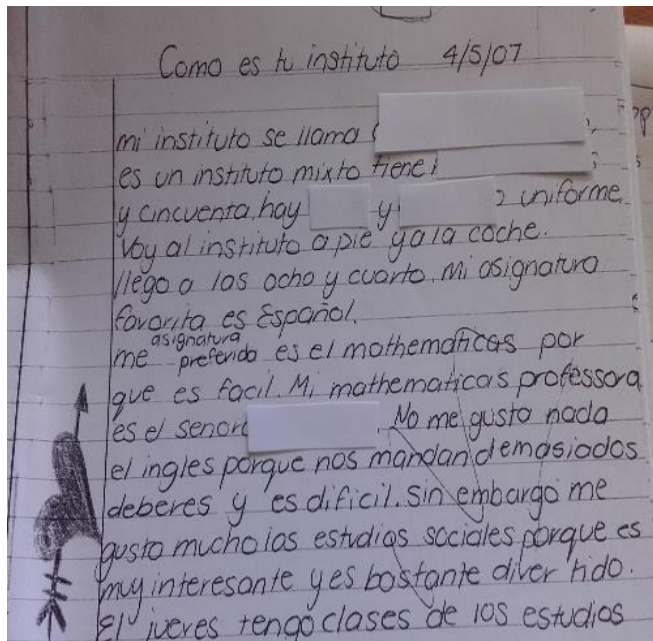 Como es tu instituto 4/5/07
mi instituto se llama
es un instituto mixto tiene
y cincuenta, hay y uniforme.
Voy al instituto a pie y a la coche.
llego a las ocho y cuarto. Mi asignatura
favorita es Español.
asignatura
me preferido es el mathematicas por
que es facil. Mi mathematicas professora
es el senor No me gusta nada
el ingles porque nos mandan demasiados
deberes y es dificil. Sin embargo me
gusta mucho los estudios sociales porque es
muy interesante y es bastante diver tido.
El jueves tengo clases de los estudios